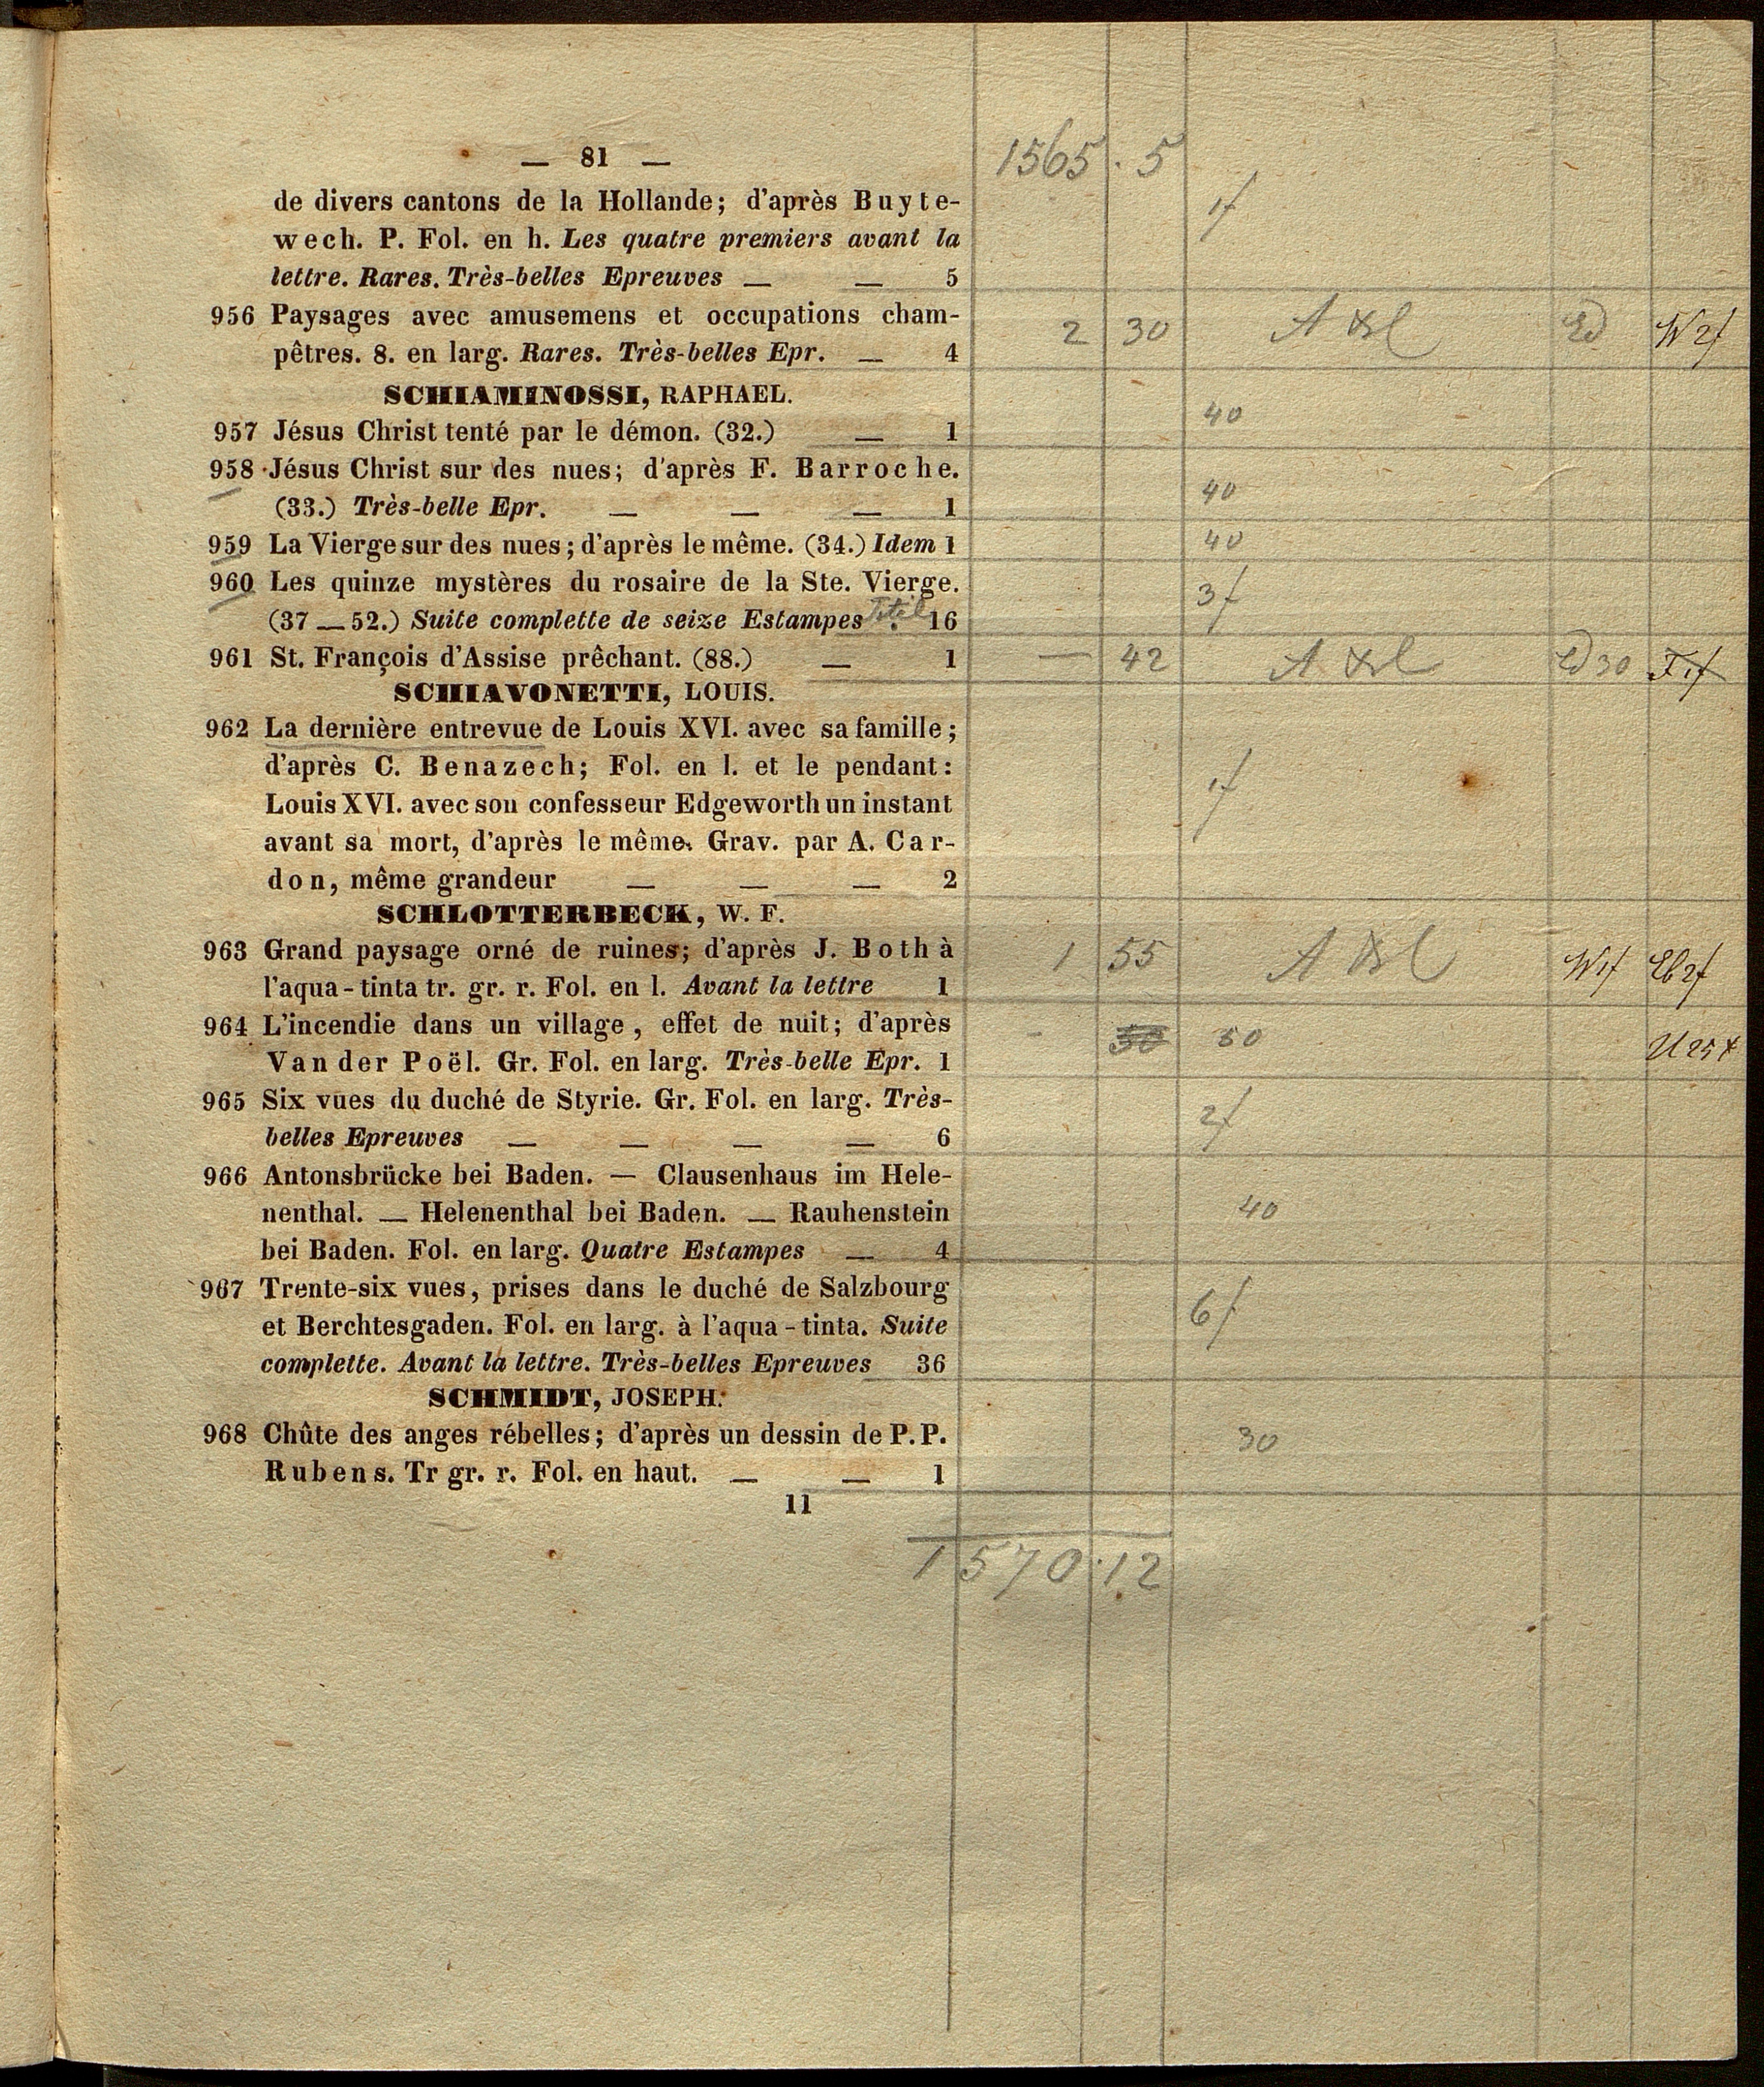 — 81 —
1565 . 5
de divers cantons de la Hollande; d'après Buyte-
1f
wech. P. Fol. en h. Les quatre premiers avant la
lettre. Rares. Très-belles Epreuves — — 5
956 Paysages avec amusemens et occupations cham-
2 30 W 2f
pêtres. 8. en larg. Rares. Très-belles Epr. — 4
SCHIAMINOSSI, RAPHAEL.
957 Jésus Christ tenté par le démon. (32.) — 1
40
958 Jésus Christ sur des nues; d'après F. Barroche.
(33.) Très-belle Epr. — — — 1
40
959 La Vierge sur des nues; d'après le même. (34.) Idem 1
40
960 Les quinze mystères du rosaire de la Ste. Vierge.
3f
(37 — 52.) Suite complette de seize Estampes 16
961 St. François d'Assise prêchant. (88.) — 1
— 42 30
SCHIAVONETTI, LOUIS.
962 La dernière entrevue de Louis XVI. avec sa famille;
d'après C. Benazech; Fol. en l. et le pendant:
1f
Louis XVI. avec son confesseur Edgeworth un instant
avant sa mort, d'après le même. Grav. par A. Car-
don, même grandeur — — — 2
SCHLOTTERBECK, W. F.
963 Grand paysage orné de ruines; d'après J. Both à
1 55 W 1f
l'aqua-tinta tr. gr. r. Fol. en l. Avant la lettre 1
964 L'incendie dans un village, effet de nuit; d'après
50
Van der Poël. Gr. Fol. en larg. Très-belle Epr. 1
965 Six vues du duché de Styrie. Gr. Fol. en larg. Très-
2f
belles Epreuves — — — — 6
966 Antonsbrücke bei Baden. — Clausenhaus im Hele-
nenthal. — Helenenthal bei Baden. — Rauhenstein
40
bei Baden. Fol. en larg. Quatre Estampes — 4
967 Trente-six vues, prises dans le duché de Salzbourg
6f
et Berchtesgaden. Fol. en larg. à l'aqua-tinta. Suite
complette. Avant la lettre. Très-belles Epreuves 36
SCHMIDT, JOSEPH.
968 Chûte des anges rébelles; d'après un dessin de P. P.
30
Rubens. Tr gr. r. Fol. en haut. — — 1
11
1570.12